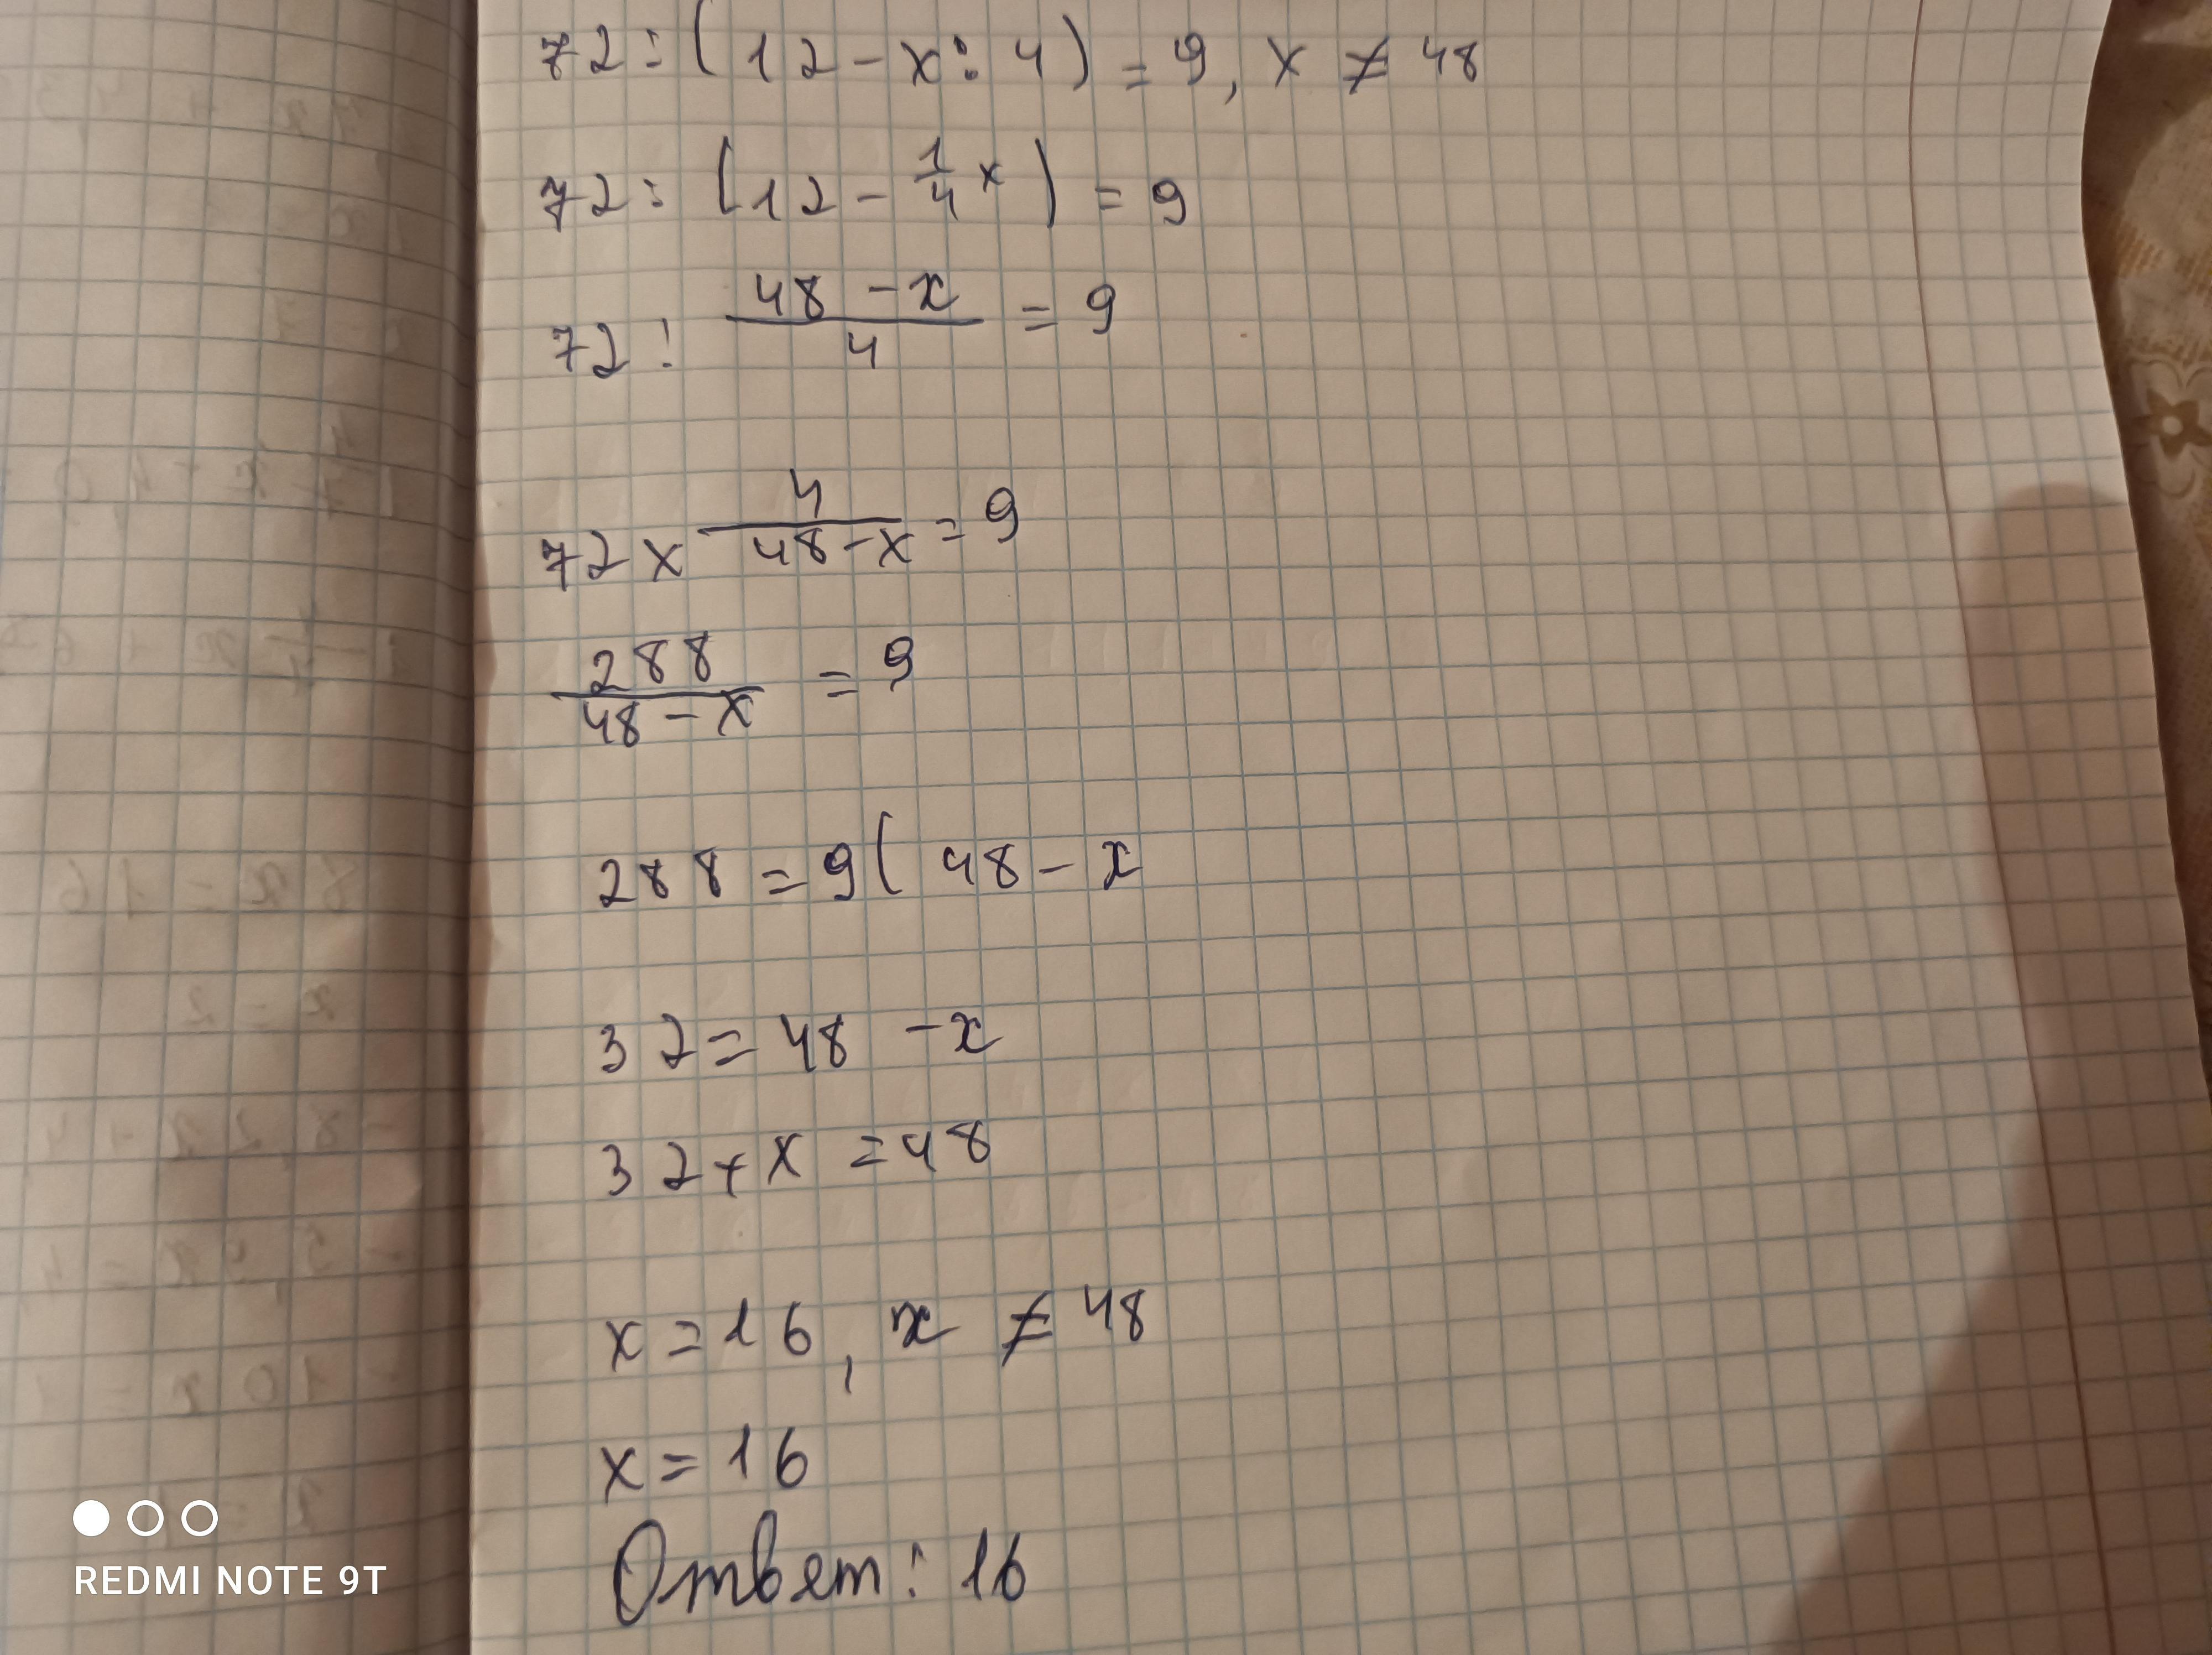 72 : (12 - x : 4) = 9, x ≠ 48
72 : (12 - 1/4 x) = 9
72 : (48 - x)/4 = 9
72 x 4/(48 - x) = 9
288/(48 - x) = 9
288 = 9( 48 - x
32 = 48 - x
32 + x = 48
x = 16, x ≠ 48
x = 16
Ответ: 16
REDMI NOTE 9T